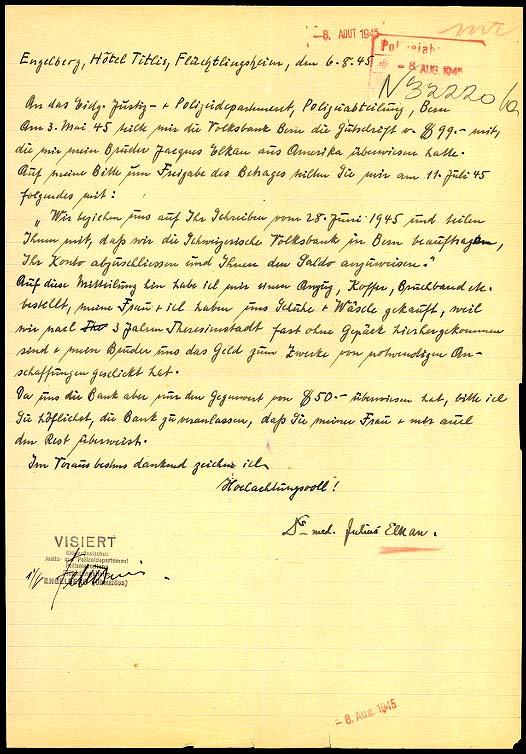 - 8. AOUT 1945
- 8. AUG 1945
N 32220
Engelberg, Hôtel Titlis, Flüchtlingsheim, den 6.8.45
An das Eidg. Justiz- + Polizeidepartment, Polizeiabteilung, Bern
Am 3. Mai 45 teilte mir die Volksbank Bern die Gutschrift v. $ 99.- mit,
die mir mein Bruder Jacques Elkan aus Amerika überwiesen hatte.
Auf meine Bitte um Freigabe des Betrages teilten Sie mir am 11. Juli 45
folgendes mit:
„Wir beziehen uns auf Ihr Schreiben vom 28. Juni 1945 und teilen
Ihnen mit, daß wir die Schweizerische Volksbank in Bern beauftragen,
Ihr Konto abzuschliessen und Ihnen den Saldo anzuweisen."
Auf diese Mitteilung hin habe ich mir einen Anzug, Koffer, Bruchband etc.
bestellt, meine Frau + ich haben uns Schuhe + Wäsche gekauft, weil
wir nach 3 Jahren Theresienstadt fast ohne Gepäck hierhergekommen
sind + mein Bruder uns das Geld zum Zwecke von notwendigen An-
schaffungen geschickt hat.
Da uns die Bank aber nur den Gegenwert von $ 50.- überwiesen hat, bitte ich
Sie höflichst, die Bank zu veranlassen, daß Sie meiner Frau + mir auch
den Rest überweist.
Im Voraus bestens dankend zeichne ich
Hochachtungsvoll!
Dr. med. Julius Elkan.
VISIERT
Eidgenössisches
Justiz- und Polizeidepartement
Polizeiabteilung
ENGELBERG (Obwalden)
- 8. Aug. 1945